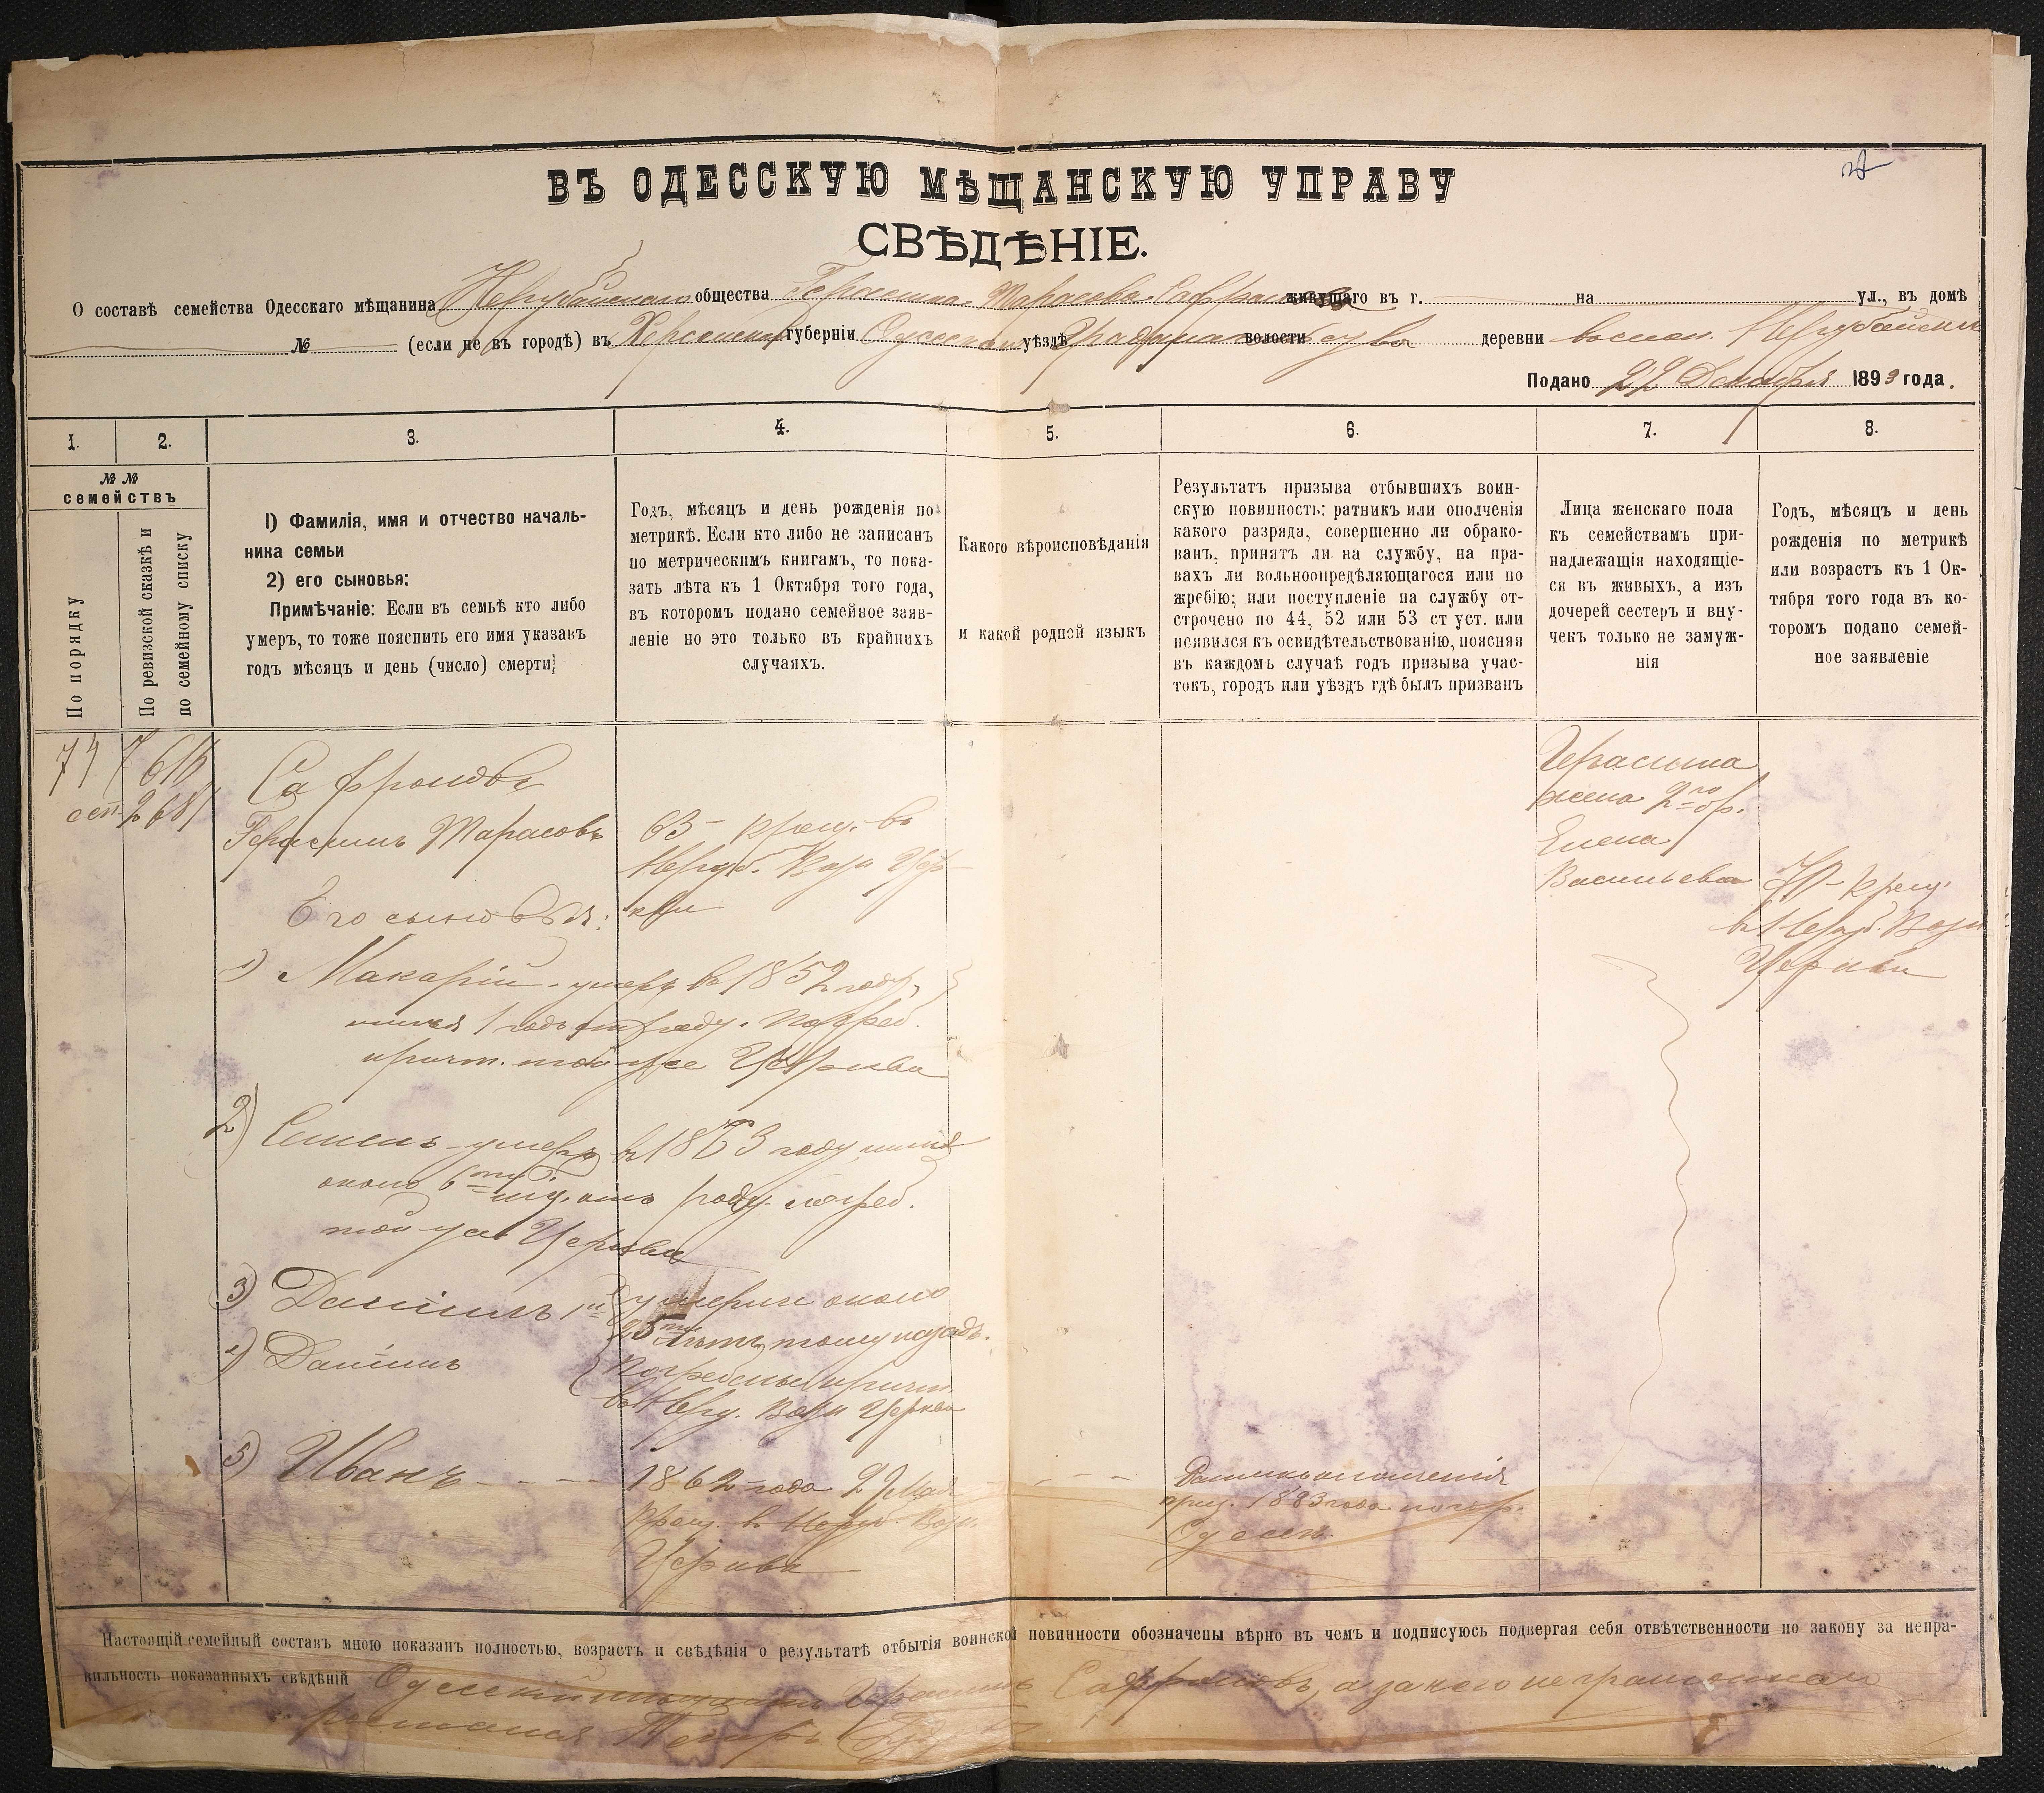 ВЪ ОДЕССКУЮ МѢЩАНСКУЮ УПРАВУ
СВѢДѢНІЕ.
О составѣ семейства Одесскаго мѣщанина Нерубайскаго общества Герасима Тарасова Сафронова живущаго въ г. на ул., въ домѣ
№ (если не въ городѣ) въ Херсонской губерніи Одесскомъ уѣздѣ волости деревни
Подано 22 Декабря 1893 года.
1. 2. 3. 4. 5. 6. 7. 8.
№ №
семействъ
По порядку
По ревизской сказкѣ и
по семейному списку
1) Фамилія, имя и отчество началь-
ника семьи
2) его сыновья:
Примѣчаніе: Если въ семьѣ кто либо
умеръ, то тоже пояснить его имя указавъ
годъ мѣсяцъ и день (число) смерти;
Годъ, мѣсяцъ и день рожденія по
метрикѣ. Если кто либо не записанъ
по метрическимъ книгамъ, то пока-
зать лѣта къ 1 Октября того года,
въ которомъ подано семейное заяв-
леніе но это только въ крайнихъ
случаяхъ.
Какого вѣроисповѣданія
и какой родной языкъ
Результатъ призыва отбывшихъ воин-
скую повинность: ратникъ или ополченія
какого разряда, совершенно ли обрако-
ванъ, принятъ ли на службу, на пра-
вахъ ли вольноопредѣляющагося или по
жребію; или поступленіе на службу от-
строчено по 44, 52 или 53 ст уст. или
неявился къ освидѣтельствованію, поясняя
въ каждомъ случаѣ годъ призыва учас-
токъ, городъ или уѣздъ гдѣ былъ призванъ
Лица женскаго пола
къ семействамъ при-
надлежащія находящіе-
ся въ живыхъ, а изъ
дочерей сестеръ и вну-
чекъ только не замуж-
нія
Годъ, мѣсяцъ и день
рожденія по метрикѣ
или возрастъ къ 1 Ок-
тября того года въ ко-
торомъ подано семей-
ное заявленіе
Сафроновъ
Герасимъ Тарасовъ
63 - крещ. въ
Неруб. Возн Цер-
кви
Его сыновья:
1) Макарій - умеръ въ 1852 году,
1 году. погреб.
причт. той же Церкви
2) Семенъ - умеръ въ 1863 году
около роду погреб.
той же Церкви
3) Даніилъ 1й
умерли около
25 лѣтъ тому назадъ.
4) Даніилъ
погребены причт.
въ Неру. Возн Церкви
5) Иванъ
1862 года 22 Мая
крещ. въ Неруб. Возн.
Церкви
Ратникъ ополченія
приз. 1883 года по гор.
Одессѣ.
Герасима
жена 2го бр.
Елена
Васильева
70 - крещ.
въ Неруб. Возн
Церкви
Настоящій семейный составъ мною показанъ полностью, возрастъ и свѣдѣнія о результатѣ отбытія воинской повинности обозначены вѣрно въ чемъ и подписуюсь подвергая себя отвѣтственности по закону за непра-
вильность показанныхъ свѣдѣній Одесскій мѣщанинъ Герасимъ Сафроновъ, а за него неграмотнаго
росписался Петръ